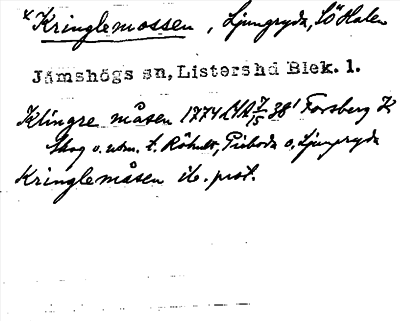 x Kringlemossen, Ljungryda, SöHalen
Jämshögs sn, Listershd Blek. l.
Klingre måsen 1774 LMA 7/15 38' Forsberg K
Skog o. utm. t. Röhult, Pieboda o. Ljungryda
Kringlemåsen ib. prot.